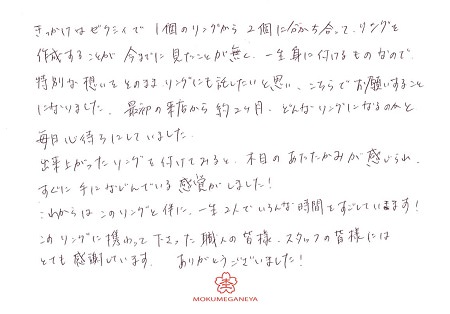 きっかけはゼクシィで1個のリングから2個に分かち合って、リングを
作成することが今までに見たことが無く、一生身に付けるものなので
特別な想いをそのままリングにも託したいと思い、こちらでお願いすること
になりました。最初の来店から約2ヶ月、どんなリングになるのかと
毎日心待ちにしていました。
出来上がったリングを付けてみると、木目のあたたかみが感じられ、
すぐに手になじんでいる感覚がしました！
これからはこのリングと伴に、一生2人でいろんな時間をすごしていきます！
このリングに携わって下さった職人の皆様、スタッフの皆様には
とても感謝しています。ありがとうございました！
MOKUMEGANEYA